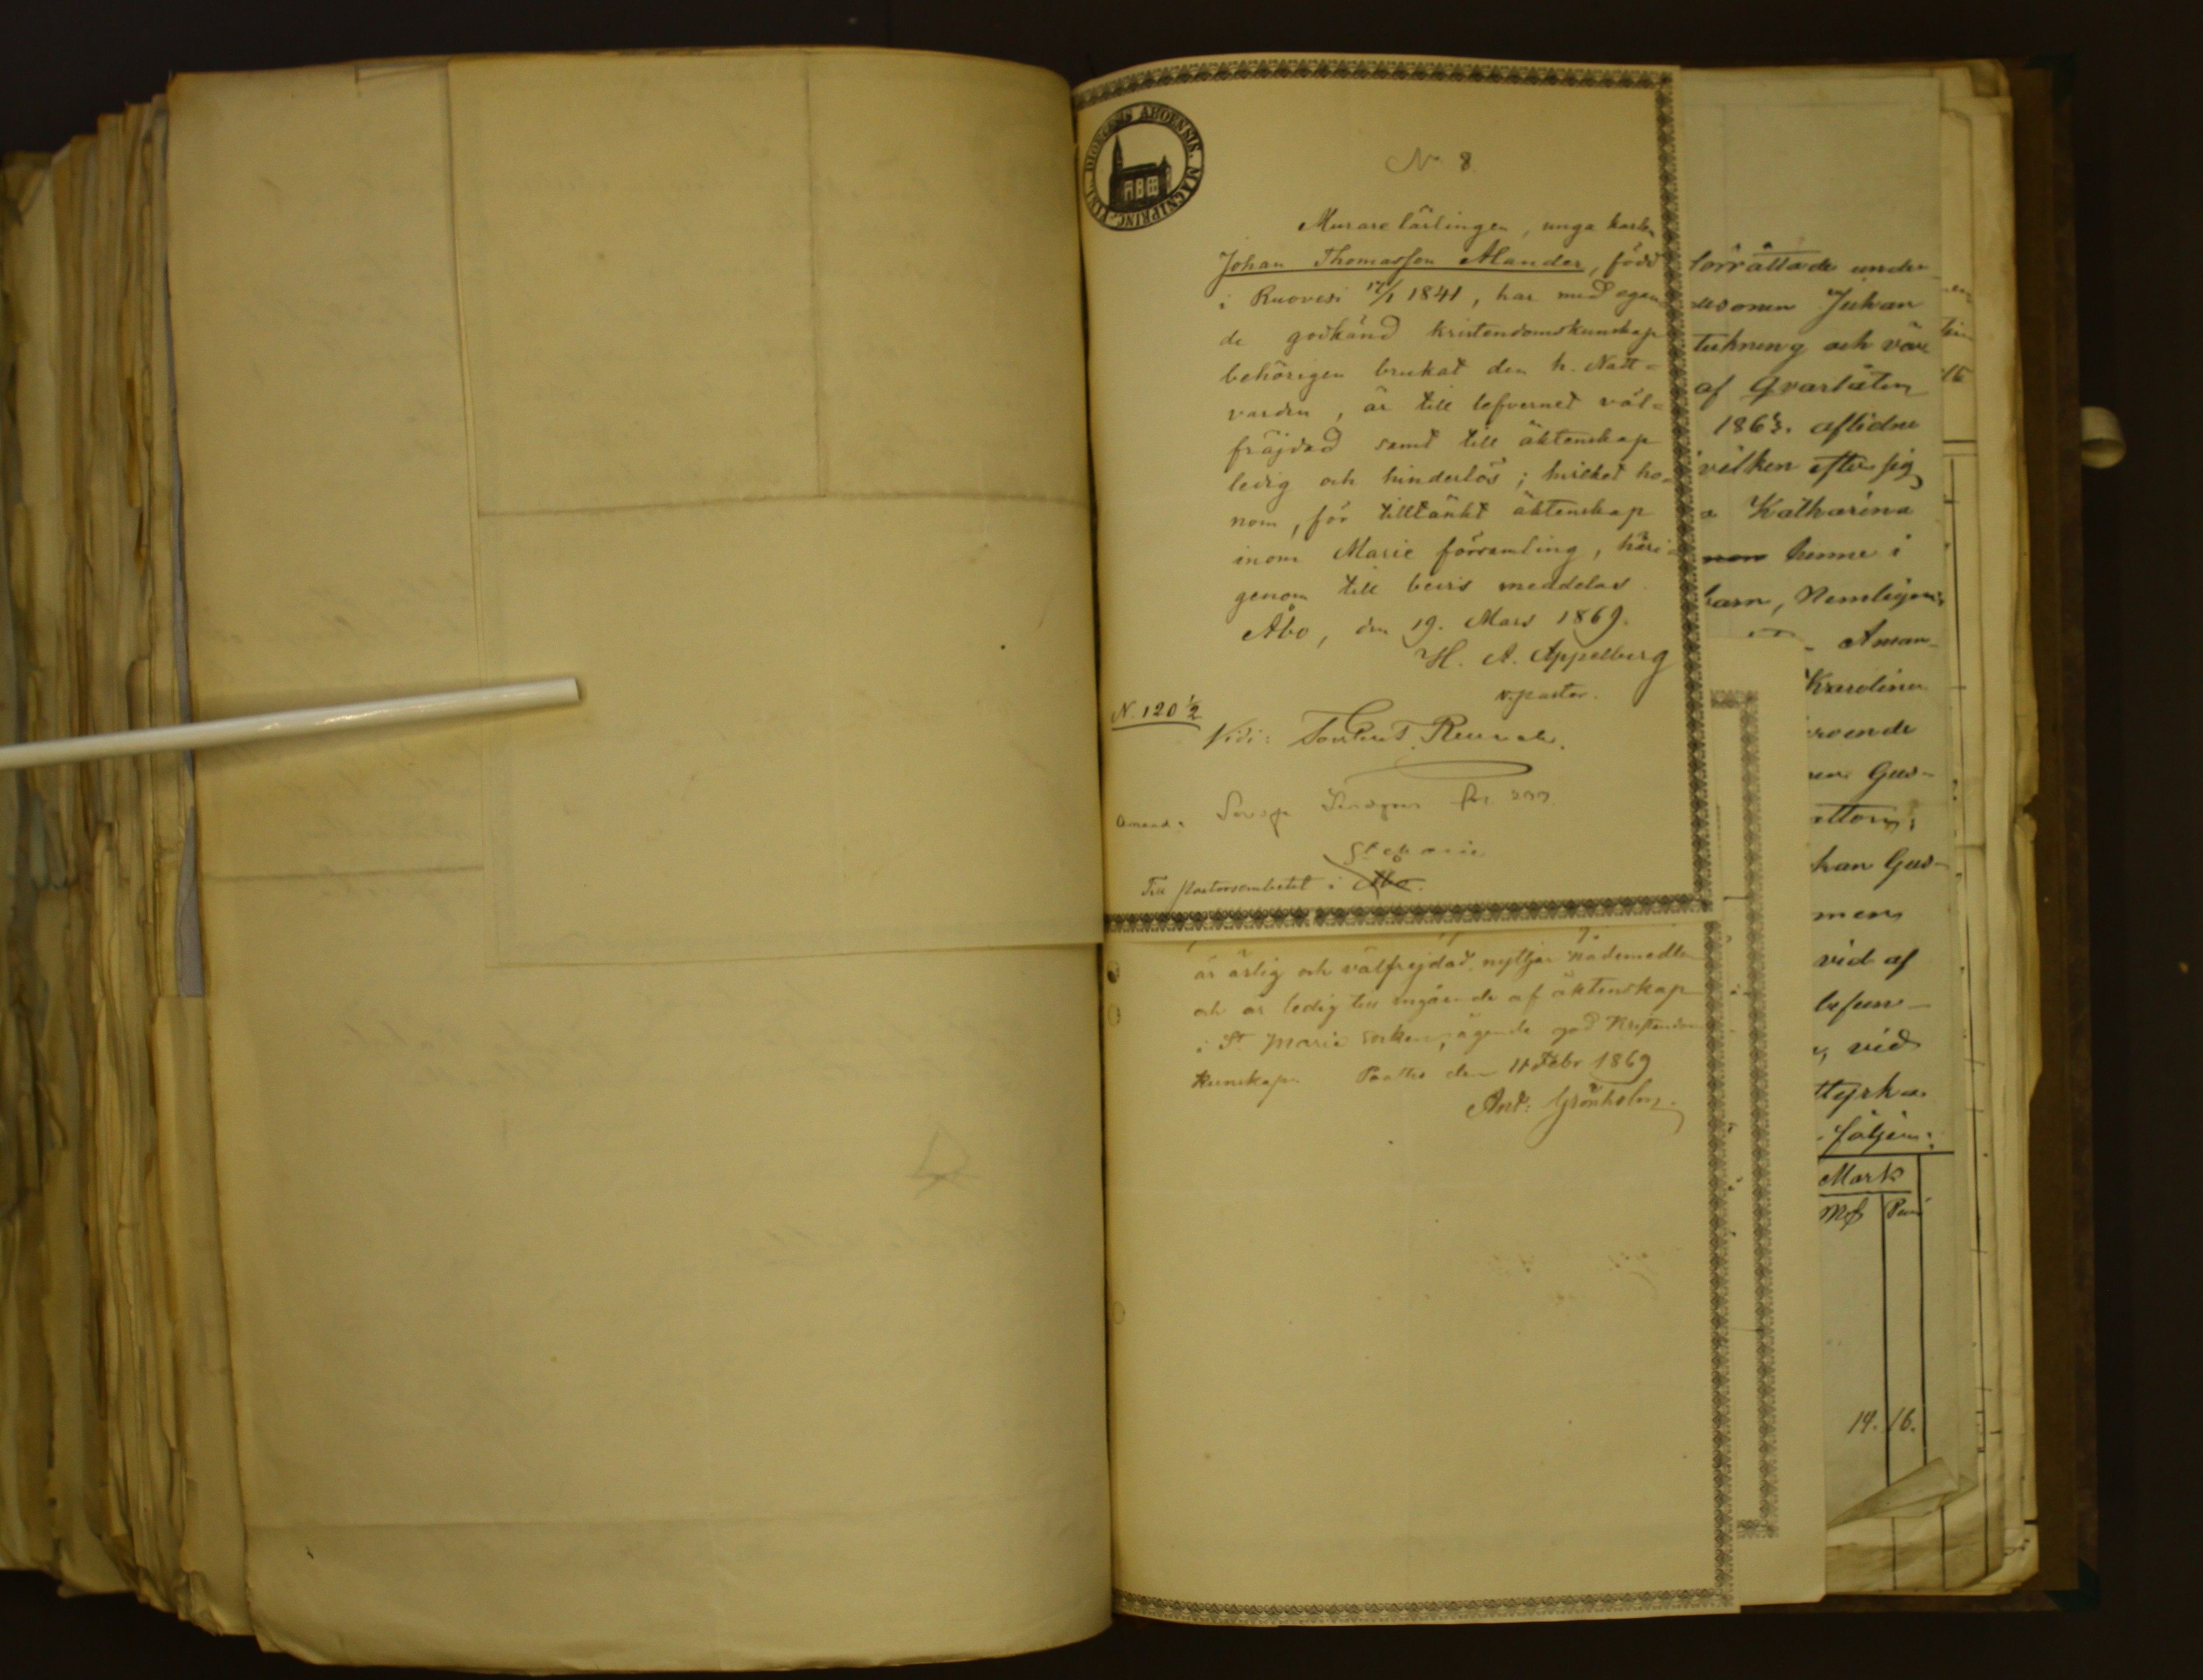 DIOECESIS ABOENSIS. MAGNI PRINC. FINL.
No 8
Murarelärlingen, unga karlen
Johan Thomasson Alander, född
i Ruovesi 17/1 1841, har med egan
de godkänd kristendomskunskap
behörigen brukat den h. Natt=
varden, är till lefvernet väl=
fräjdad samt till äktenskap
ledig och hinderlös; hvilket ho=
nom, för tilltänkt äktenskap
inom Marie församling, häri=
genom till bevis meddelas.
Åbo, den 19. Mars 1869.
H. A. Appelberg
v. pastor.
N. 120 1/2
Vidi:
St Marie
Till pastorsembetet i Åbo.
är ärlig och välfrejdad, nyttjar Nådemedlen
och är ledig till ingående af äktenskap
i St Marie socken, ägende god Kristendoms
kunskap. den 11 Febr 1869
And: Grönholm.
förrättade under
usonen Johan
teckning och vär
af Qvarlåten
1863. aflidne
vilken efter sig
a Katharina
henne i
barn, Nemligen:
Aman-
Karolina
roende
Gus-
han Gus-
men
vid af
befun-
vid
styrka
följer:
Mark
Mk Pen
14. 16.